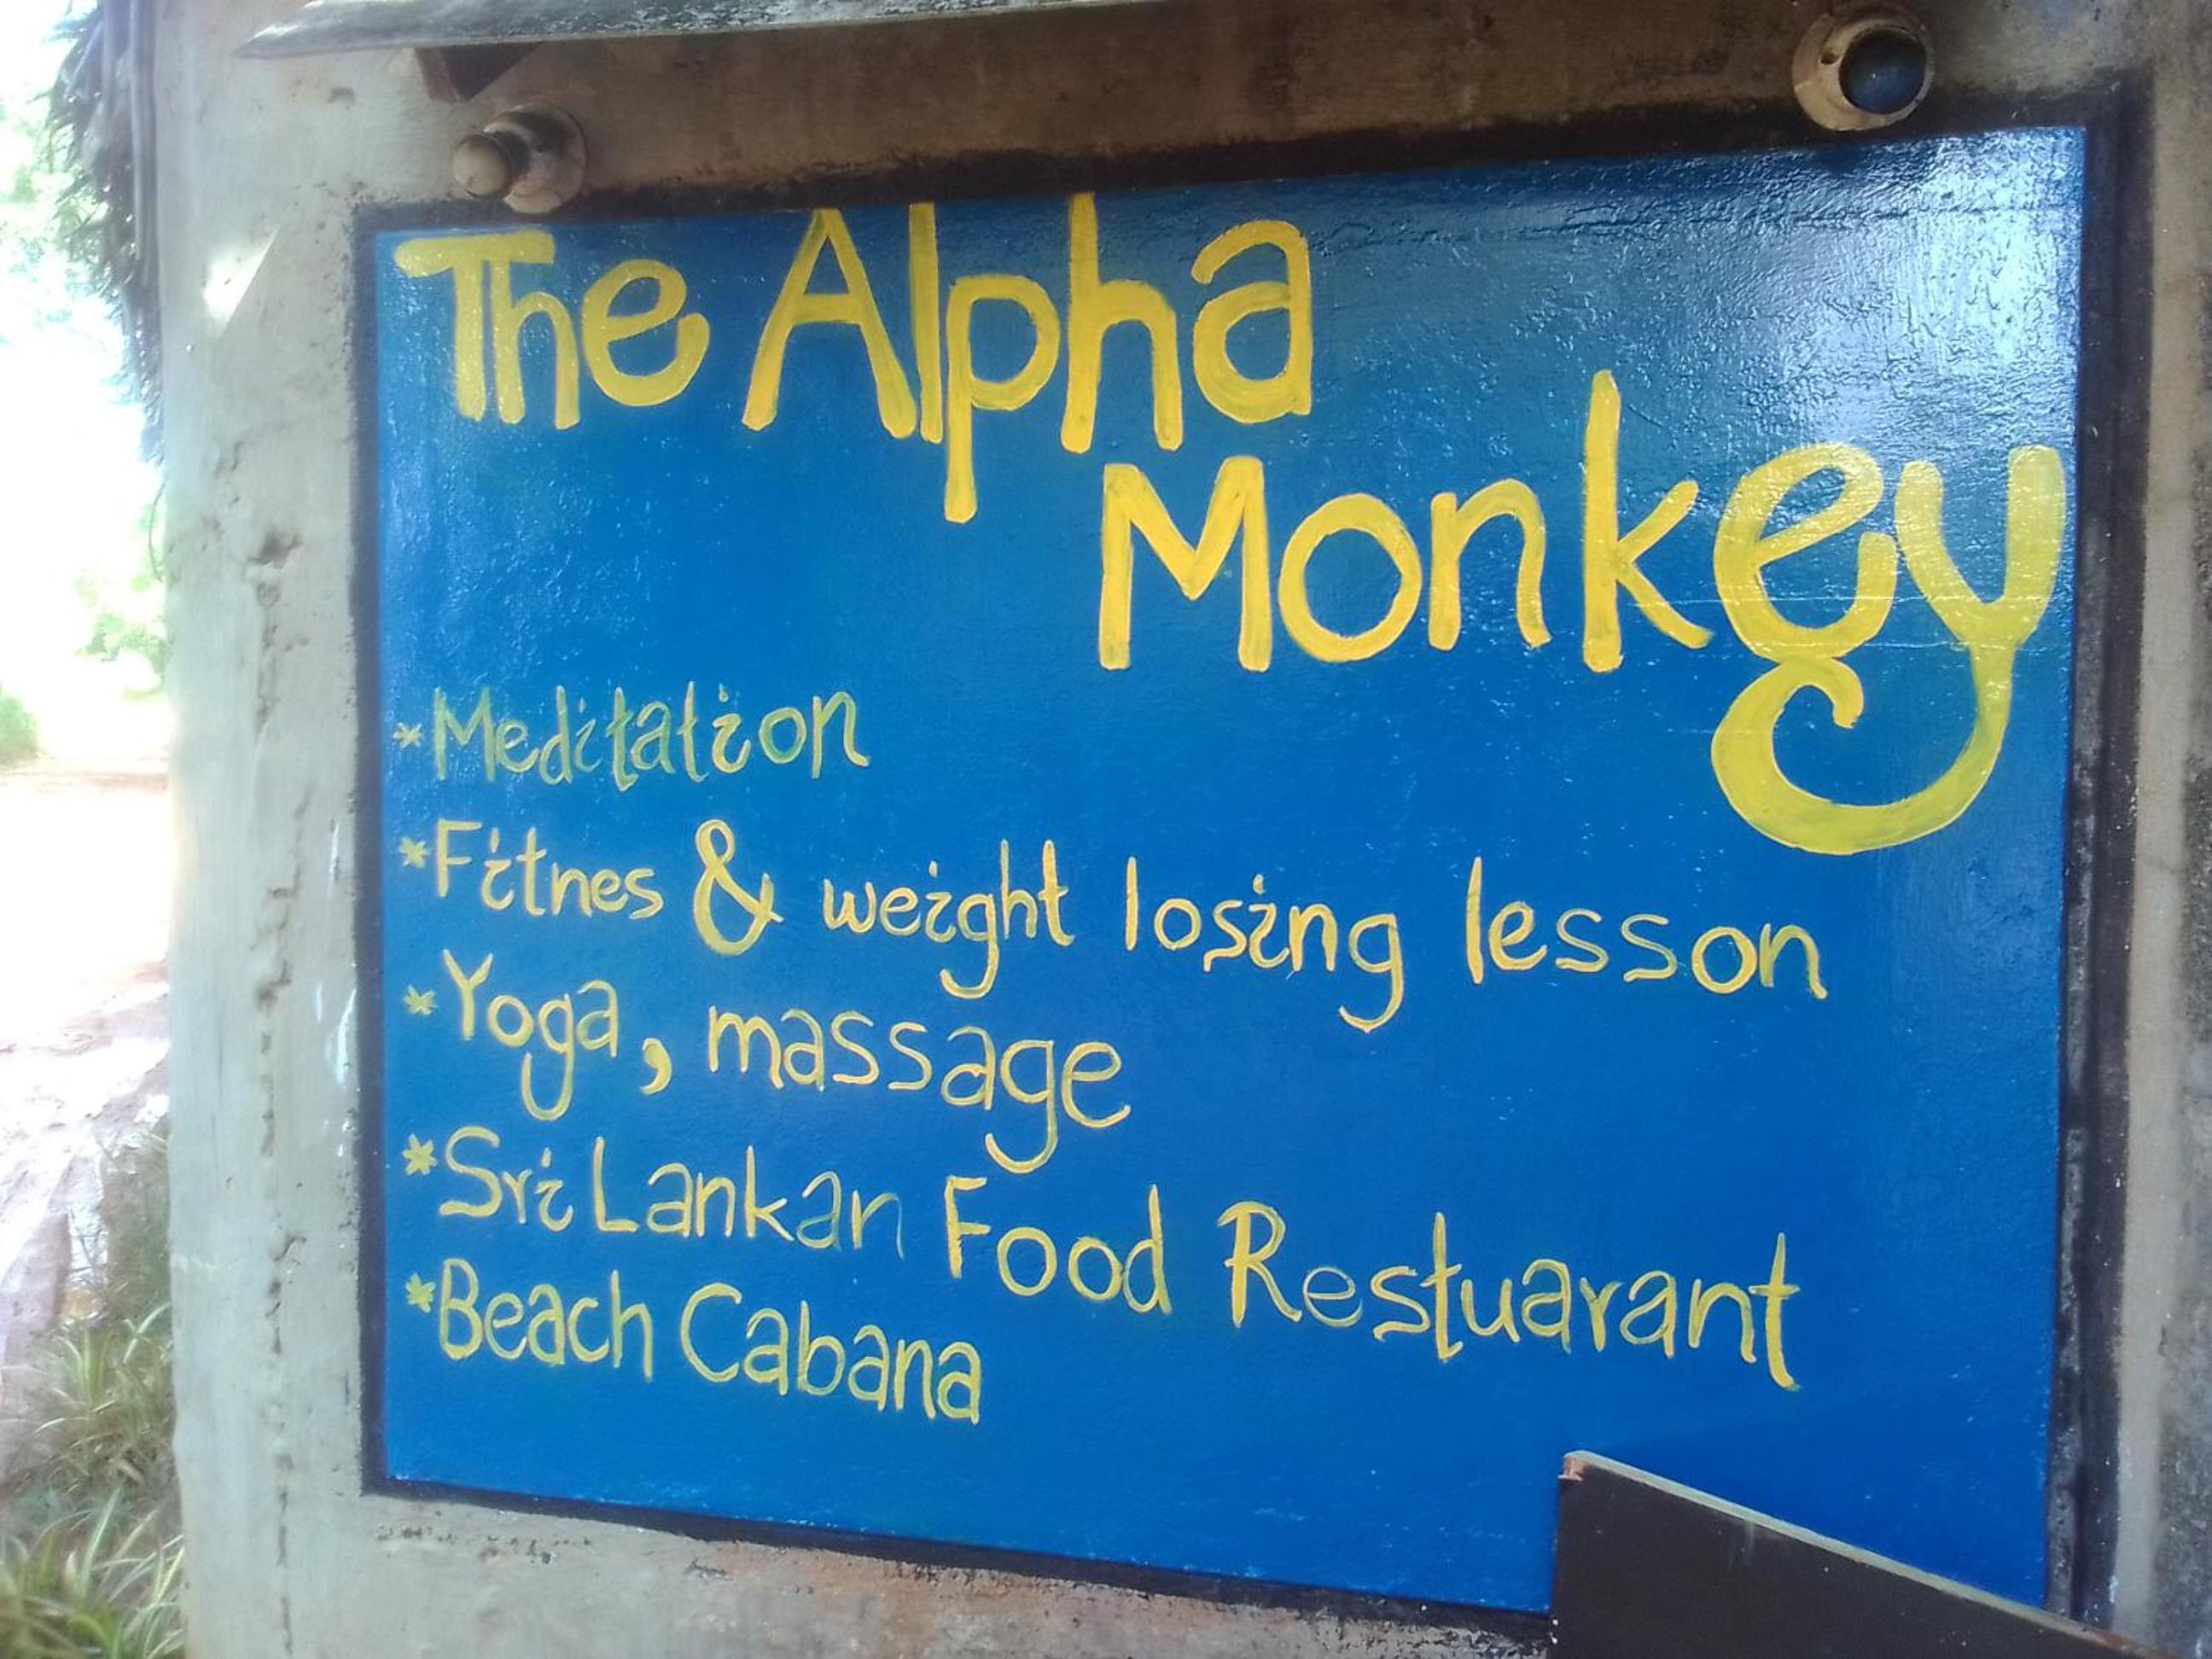 The Alpha
Monkey
*Meditation
*Fitnes & weight losing lesson
*Yoga, massage
*Sri Lankan Food Restuarant
*Beach Cabana